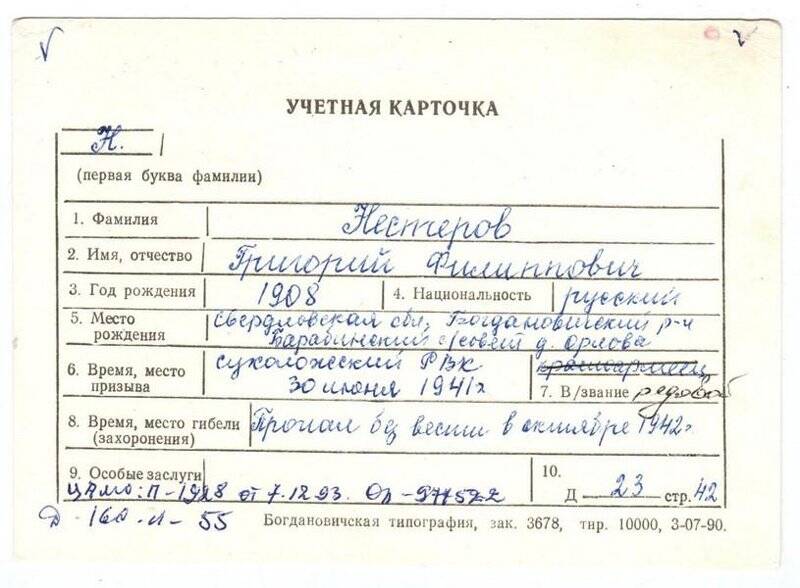 УЧЕТНАЯ КАРТОЧКА
Н.
(первая буква фамилии)
1. Фамилия Нестеров
2. Имя, отчество Григорий Филиппович
3. Год рождения 1908 4. Национальность русский
5. Место рождения Свердловская обл, Богдановичский р-н
Барабинский с/совет д. Орлова
6. Время, место призыва сухоложский РВК
30 июня 1941г
красноармеец
7. В/звание рядовой
8. Время, место гибели (захоронения) Пропал без вести в октябре 1942г
9. Особые заслуги
ЦАМО: П-1928 от 7.12.93. Оп-977522
Д-160 л-55
10.
Д 23 стр. 42
Богдановичская типография, зак. 3678, тир. 10000, 3-07-90.